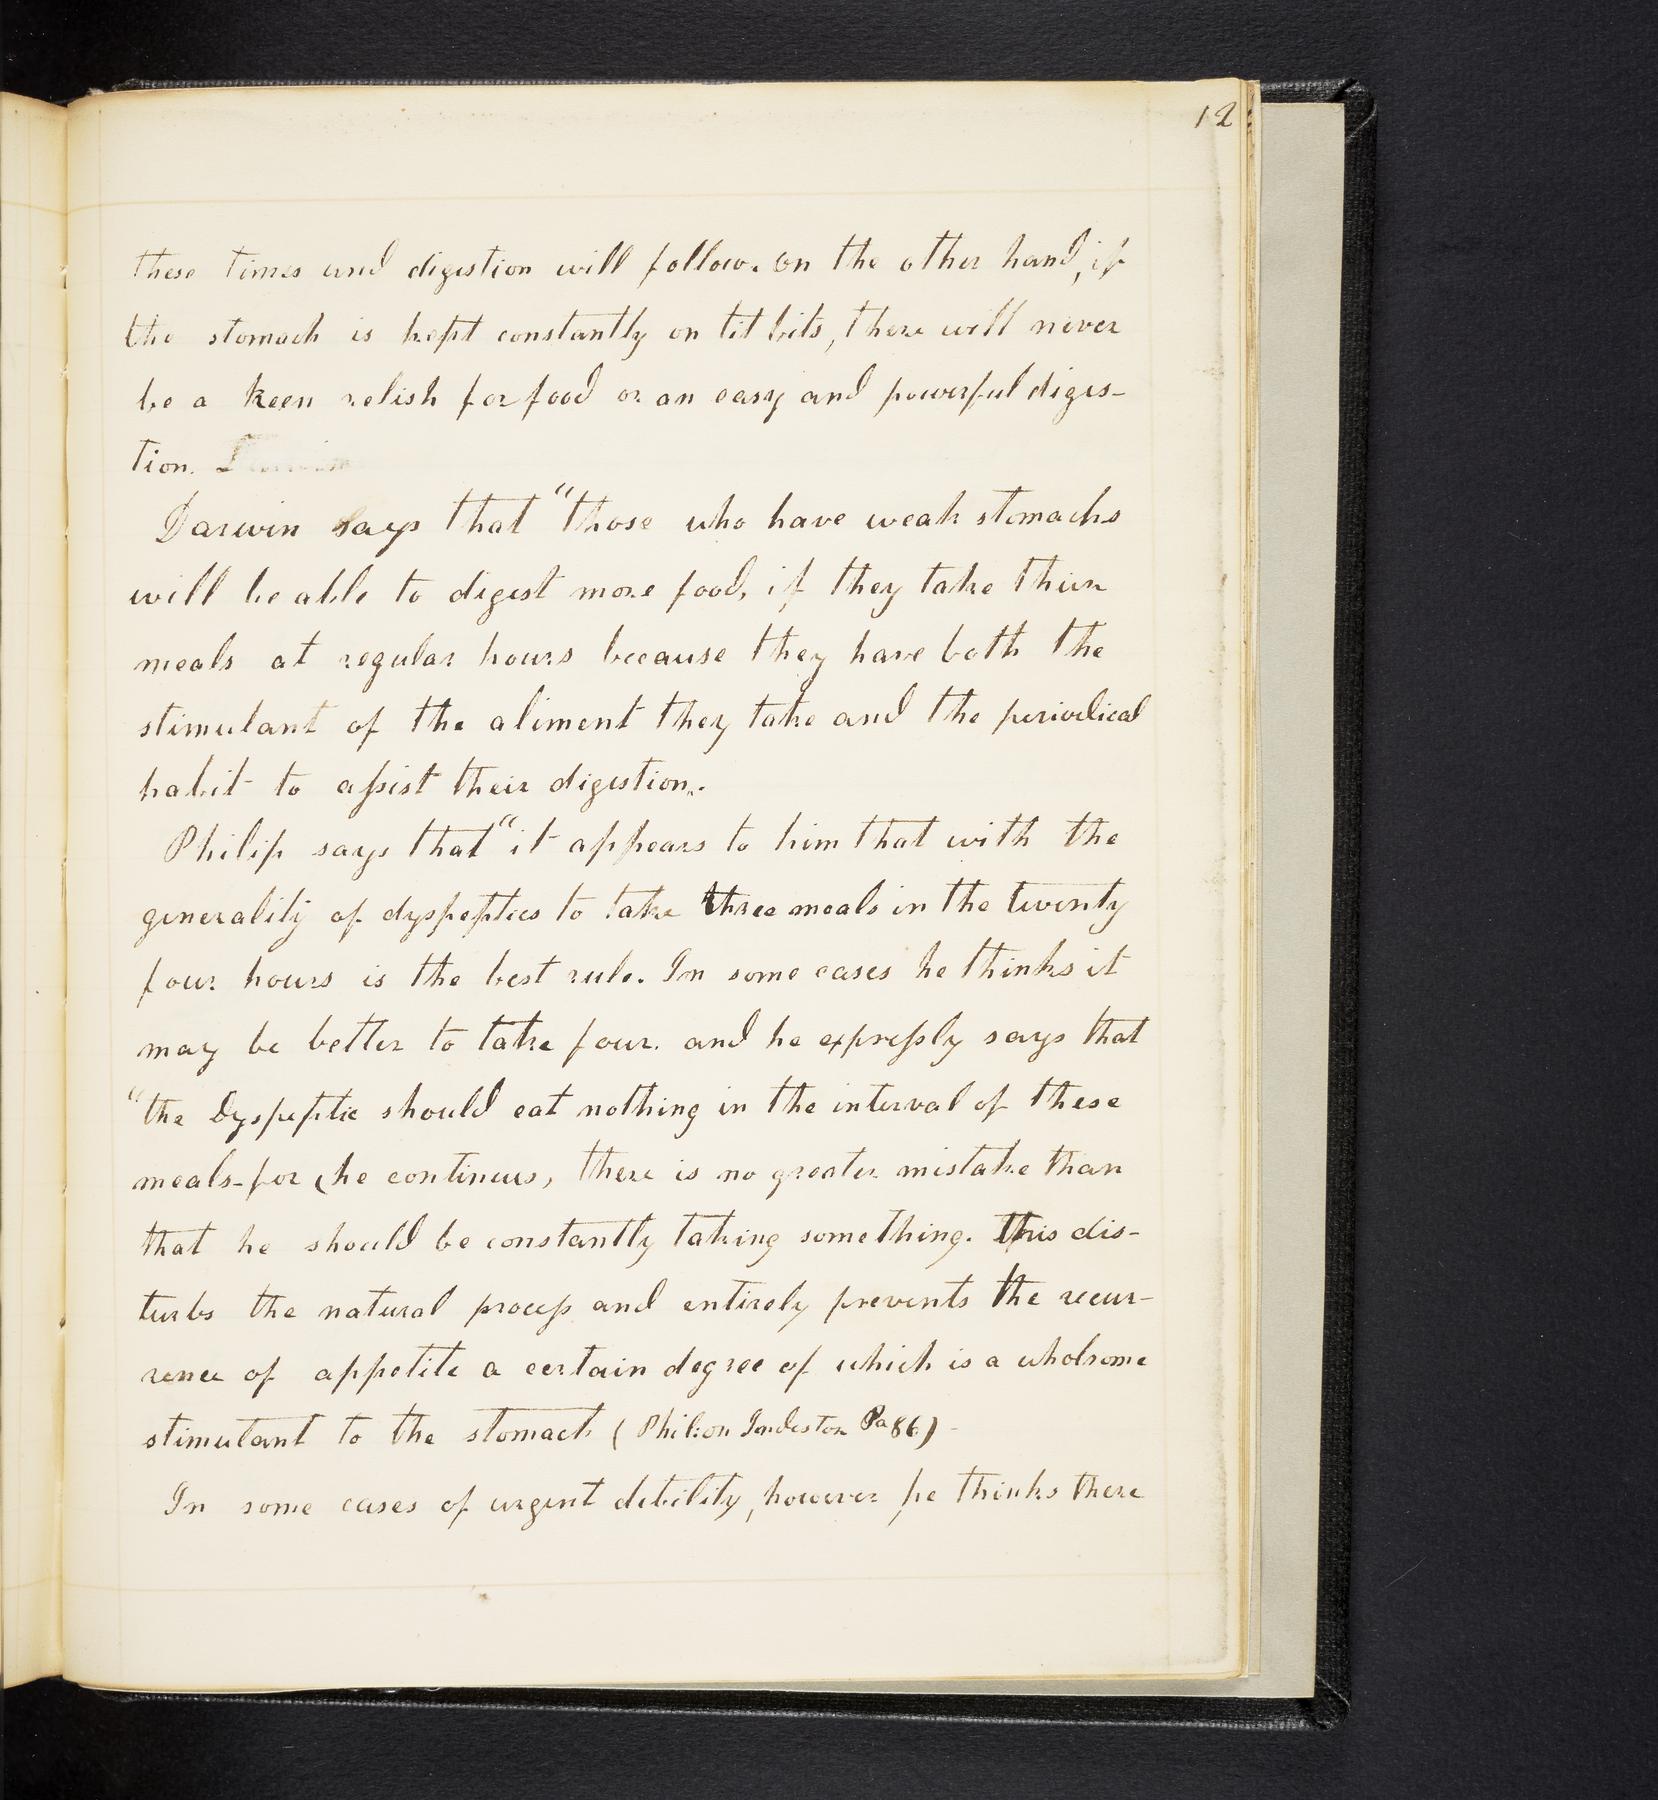 12
these times and digestion will follow. on the other hand, if
the stomach is kept constantly on tit bits, there will never
be a keen relish for food or an easy and powerful diges-
tion.
Darwin says that "those who have weak stomachs
will be able to digest more food, if they take their
meals at regular hours because they have both the
stimulant of the aliment they take and the periodical
habit to assist their digestion.
Philip says that "it appears to him that with the
generality of dyspeptics to take three meals in the twenty
four hours is the best rule. In some cases he thinks it
may be better to take four. and he expressly says that
"the Dyspeptic should eat nothing in the interval of these
meals-for (he continues, there is no greater mistake than
that he should be constantly taking something. This dis-
turbs the natural process and entirely prevents the recur-
rence of appetite a certain degree of which is a wholsome
stimulant to the stomach (Phil: on Pa 86)-
In some cases of urgent debility, however, he thinks there